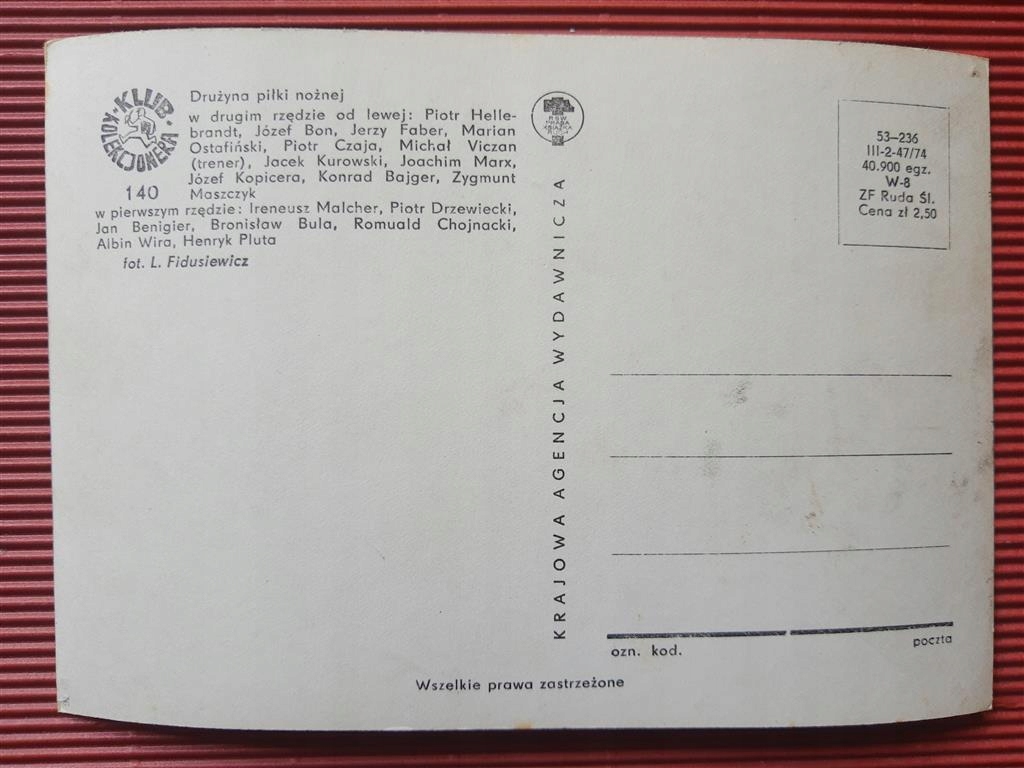 KLUB KOLEKCJONERA
140
Drużyna piłki nożnej
w drugim rzędzie od lewej: Piotr Helle-
brandt, Józef Bon, Jerzy Faber, Marian
Ostafiński, Piotr Czaja, Michał Viczan
(trener), Jacek Kurowski, Joachim Marx,
Józef Kopicera, Konrad Bajger, Zygmunt
Maszczyk
w pierwszym rzędzie: Ireneusz Malcher, Piotr Drzewiecki,
Jan Benigier, Bronisław Bula, Romuald Chojnacki,
Albin Wira, Henryk Pluta
fot. L. Fidusiewicz
RSW
PRASA
KSIĄŻKA
RUCH
KRAJOWA AGENCJA WYDAWNICZA
53–236
III-2-47/74
40.900 egz.
W-8
ZF Ruda Śl.
Cena zł 2,50
ozn. kod.
poczta
Wszelkie prawa zastrzeżone